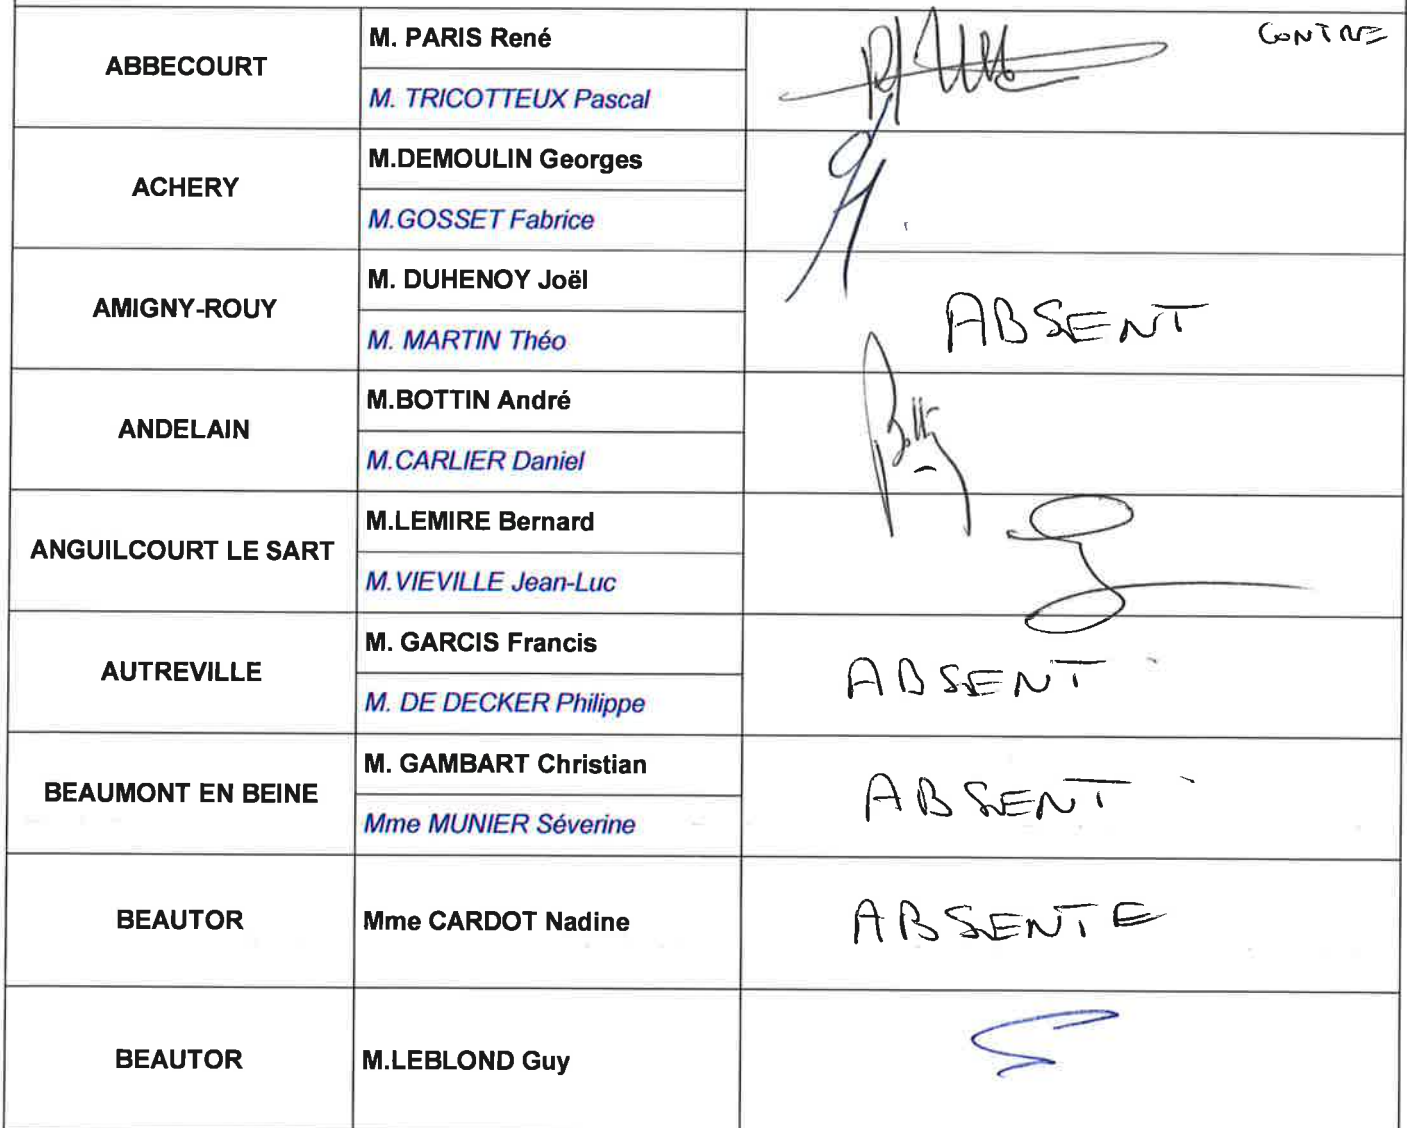 ABBECOURT
M. PARIS René
CONTRE
M. TRICOTTEUX Pascal
ACHERY
M.DEMOULIN Georges
M.GOSSET Fabrice
AMIGNY-ROUY
M. DUHENOY Joël
M. MARTIN Théo
ABSENT
ANDELAIN
M.BOTTIN André
M.CARLIER Daniel
ANGUILCOURT LE SART
M.LEMIRE Bernard
M.VIEVILLE Jean-Luc
AUTREVILLE
M. GARCIS Francis
M. DE DECKER Philippe
ABSENT
BEAUMONT EN BEINE
M. GAMBART Christian
Mme MUNIER Séverine
ABSENT
BEAUTOR
Mme CARDOT Nadine
ABSENTE
BEAUTOR
M.LEBLOND Guy